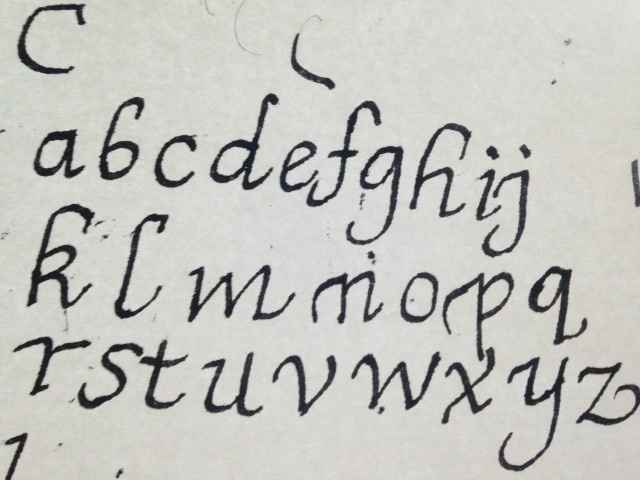 C
abcdefghij
klmnopq
rstuvwxyz